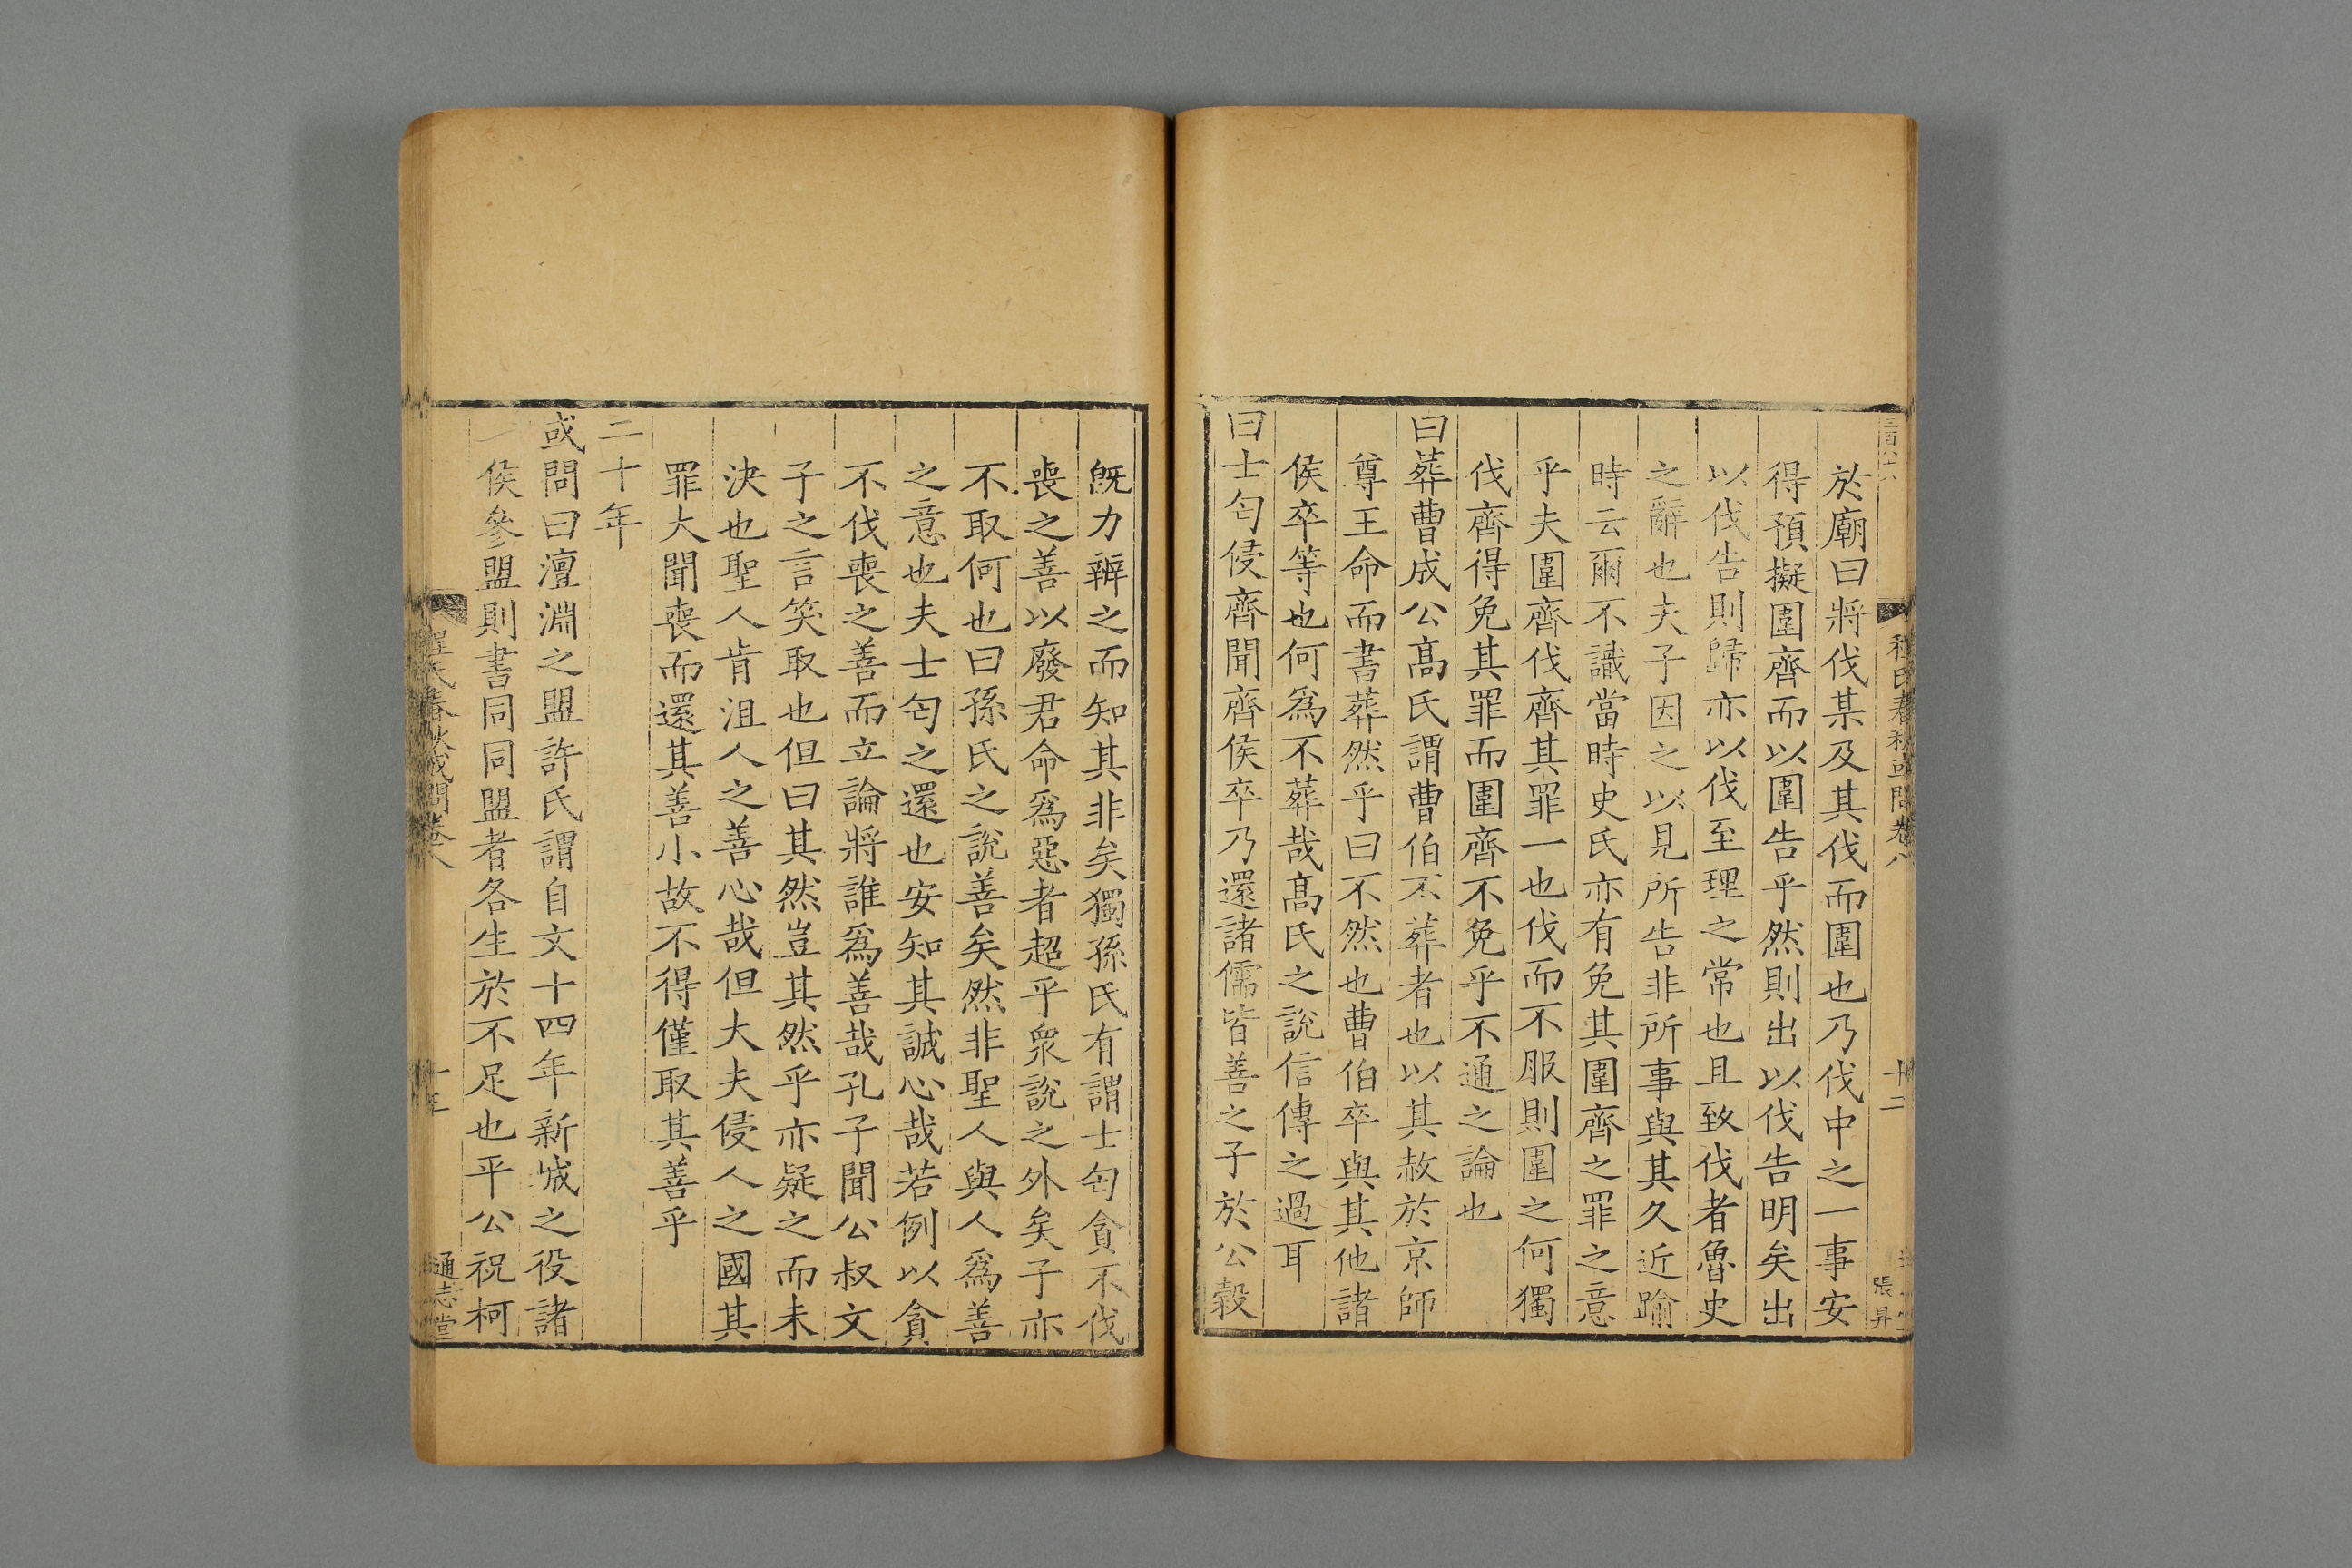 程氏春秋或問卷八
十二
張昇
於廟曰將伐某及其伐而圍也乃伐中之一事安
得預擬圍齊而以圍告乎然則出以伐告明矣出
以伐告則歸亦以伐至理之常也且致伐者魯史
之辭也夫子因之以見所告非所事與其久近踰
時云爾不識當時史氏亦有免其圍齊之罪之意
乎夫圍齊伐齊其罪一也伐而不服則圍之何獨
伐齊得免其罪而圍齊不免乎不通之論也
曰葬曹成公髙氏謂曹伯不葬者也以其赦於京師
尊王命而書葬然乎曰不然也曹伯卒與其他諸
侯卒等也何爲不葬哉髙氏之說信傳之過耳
曰士匄侵齊聞齊侯卒乃還諸儒皆善之子於公穀
旣力辨之而知其非矣獨孫氏有謂士匄貪不伐
喪之善以廢君命爲惡者超乎衆說之外矣子亦
不取何也曰孫氏之說善矣然非聖人與人爲善
之意也夫士匄之還也安知其誠心哉若例以貪
不伐喪之善而立論將誰爲善哉孔子聞公叔文
子之言笑取也但曰其然豈其然乎亦疑之而未
決也聖人肯沮人之善心哉但大夫侵人之國其
罪大聞喪而還其善小故不得僅取其善乎
二十年
或問曰澶淵之盟許氏謂自文十四年新城之役諸
侯參盟則書同同盟者各生於不足也平公祝柯
程氏春秋或問卷八
通志堂